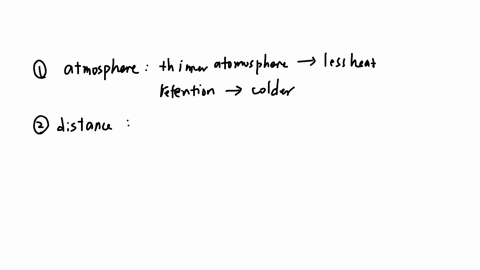 ① atmosphere : thinner atomosphere → less heat
retention → colder
② distance :